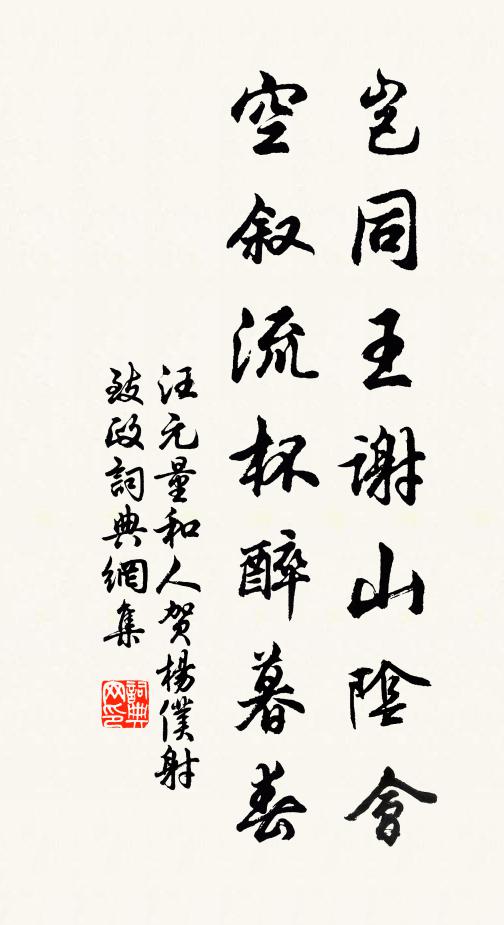 岂同王谢山陰會
空叙流杯醉暮春
汪元量和人贺楊僕射
致政詞典網集
詞典网印